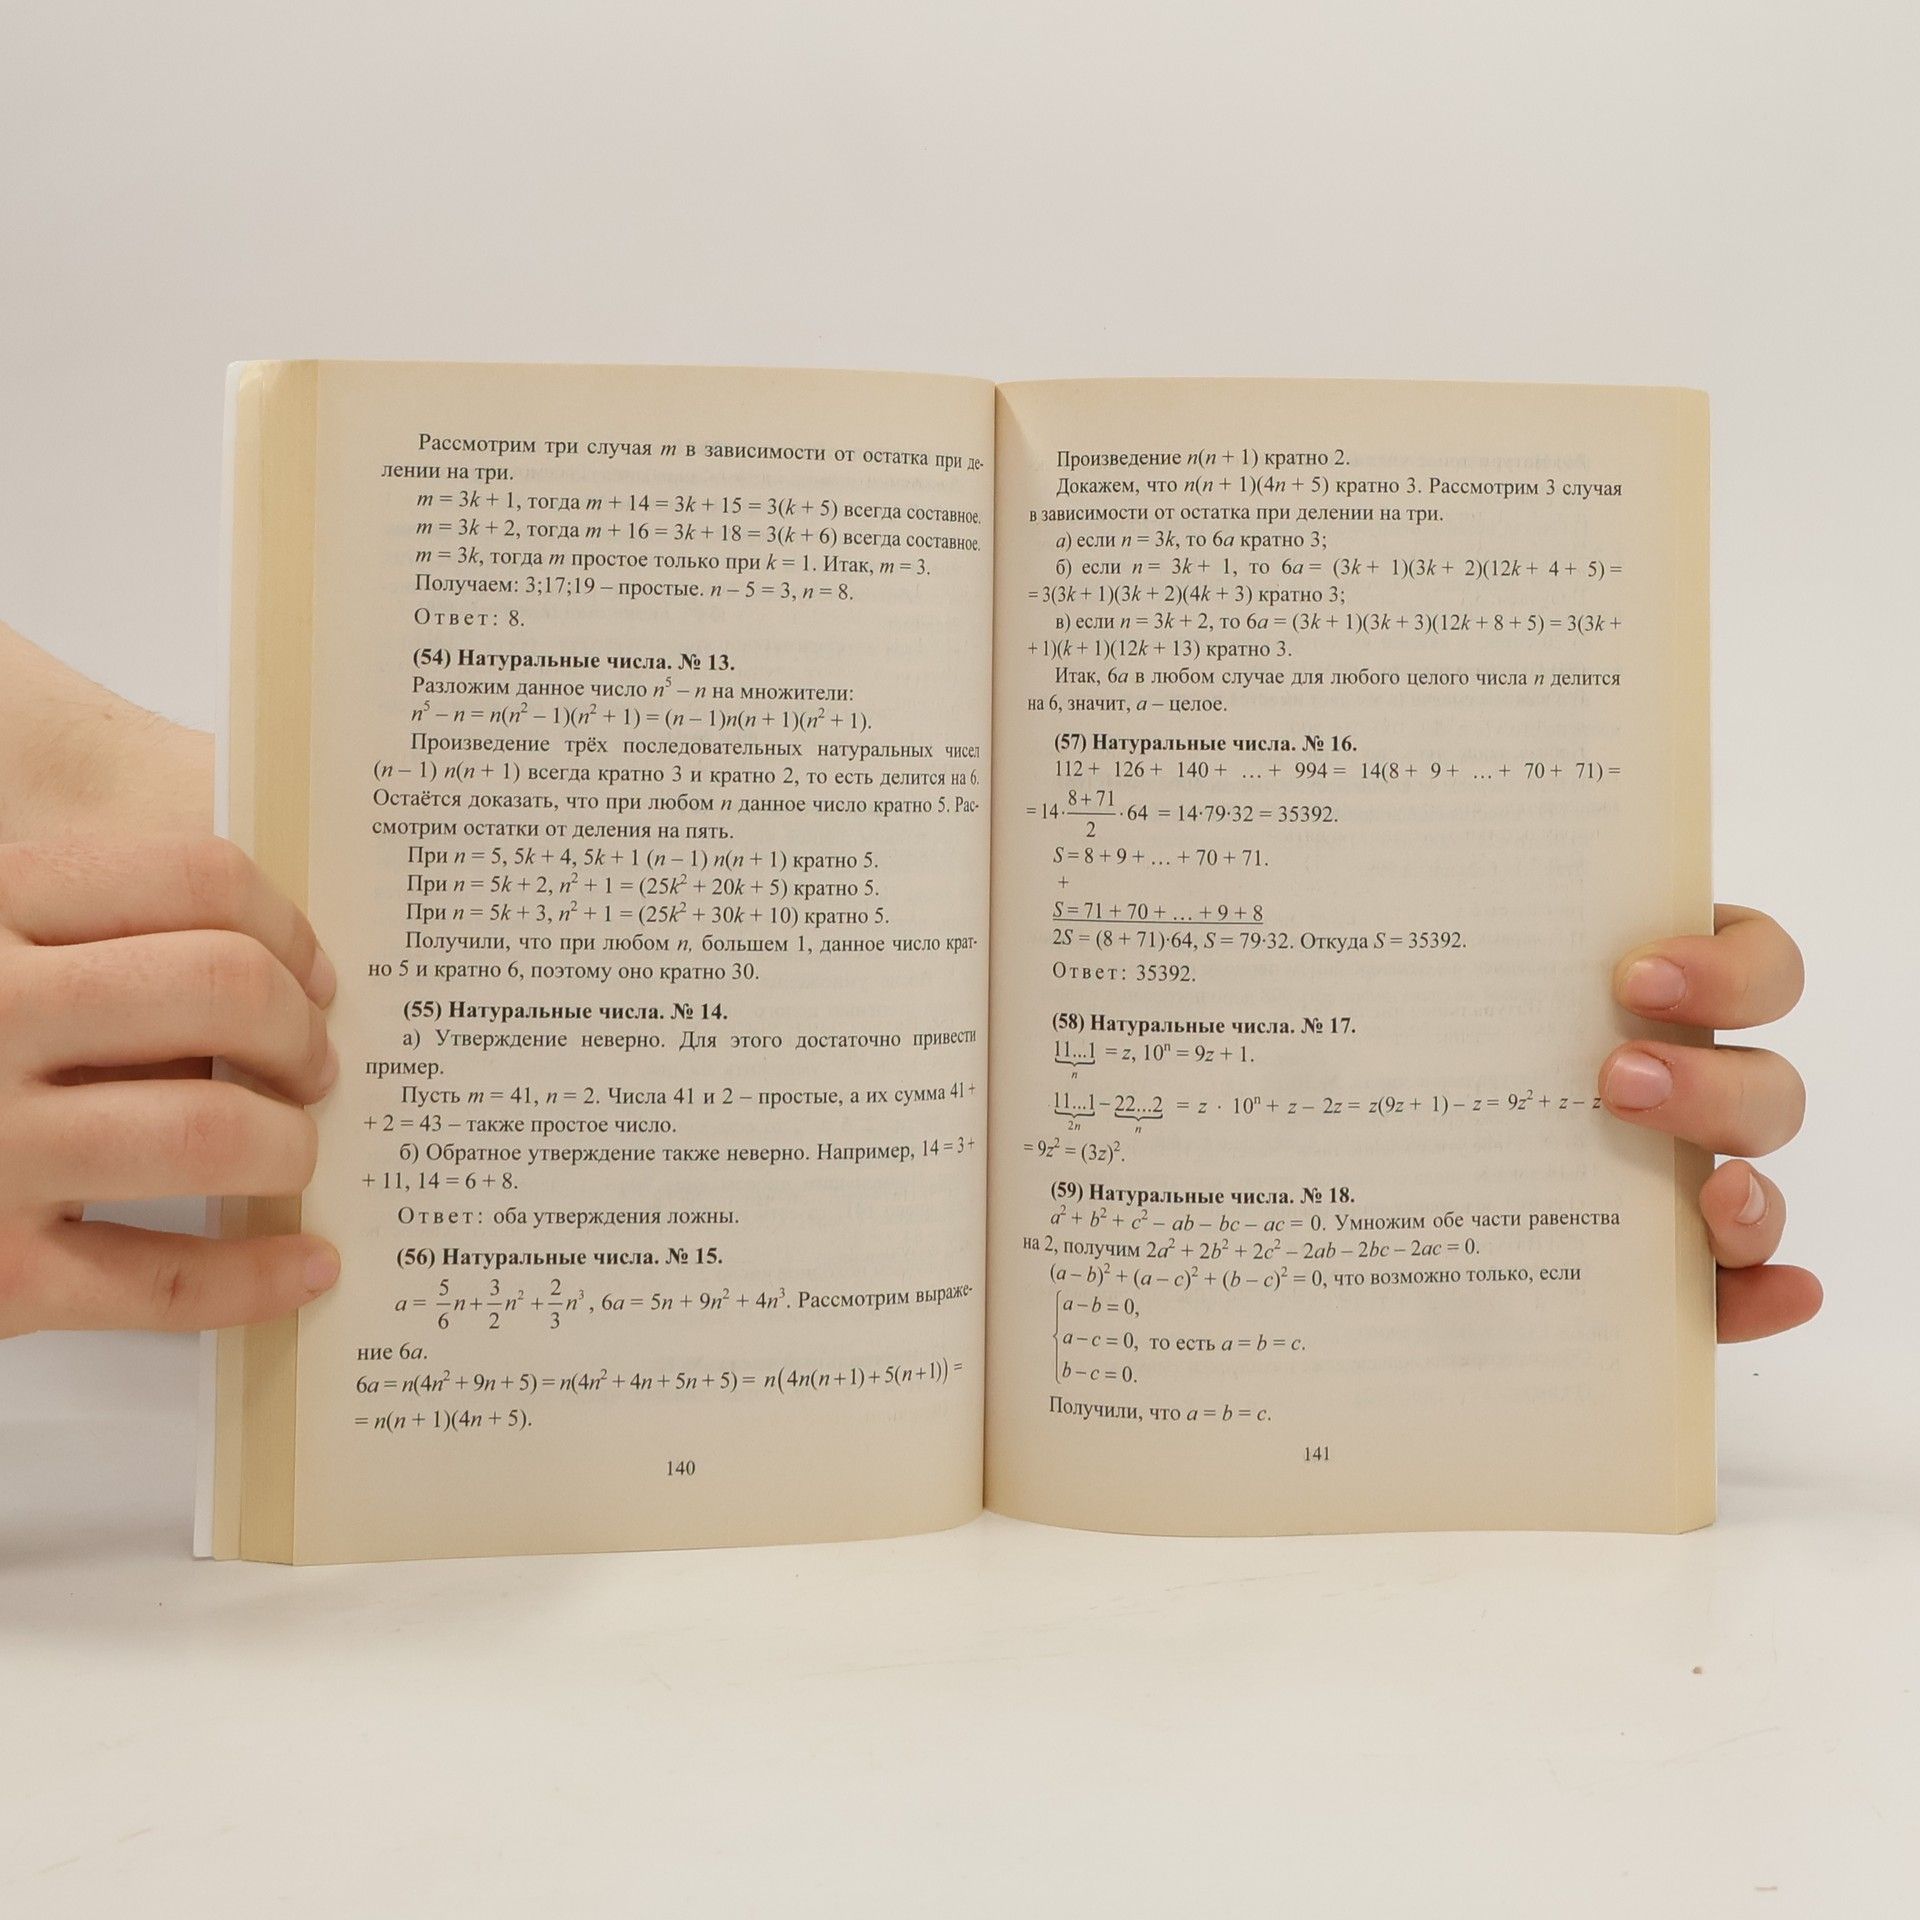 Рассмотрим три случая m в зависимости от остатка при де-
лении на три.
m = 3k + 1, тогда m + 14 = 3k + 15 = 3(k + 5) всегда составное.
m = 3k + 2, тогда m + 16 = 3k + 18 = 3(k + 6) всегда составное.
m = 3k, тогда m простое только при k = 1. Итак, m = 3.
Получаем: 3;17;19 – простые. n – 5 = 3, n = 8.
Ответ: 8.
(54) Натуральные числа. № 13.
Разложим данное число n⁵ – n на множители:
n⁵ – n = n(n² – 1)(n² + 1) = (n – 1)n(n + 1)(n² + 1).
Произведение трёх последовательных натуральных чисел
(n – 1) n(n + 1) всегда кратно 3 и кратно 2, то есть делится на 6.
Остаётся доказать, что при любом n данное число кратно 5. Рас-
смотрим остатки от деления на пять.
При n = 5, 5k + 4, 5k + 1 (n – 1) n(n + 1) кратно 5.
При n = 5k + 2, n² + 1 = (25k² + 20k + 5) кратно 5.
При n = 5k + 3, n² + 1 = (25k² + 30k + 10) кратно 5.
Получили, что при любом n, большем 1, данное число крат-
но 5 и кратно 6, поэтому оно кратно 30.
(55) Натуральные числа. № 14.
а) Утверждение неверно. Для этого достаточно привести
пример.
Пусть m = 41, n = 2. Числа 41 и 2 – простые, а их сумма 41 +
+ 2 = 43 – также простое число.
б) Обратное утверждение также неверно. Например, 14 = 3 +
+ 11, 14 = 6 + 8.
Ответ: оба утверждения ложны.
(56) Натуральные числа. № 15.
a = 5/6 n + 3/2 n² + 2/3 n³, 6a = 5n + 9n² + 4n³. Рассмотрим выраже-
ние 6a.
6a = n(4n² + 9n + 5) = n(4n² + 4n + 5n + 5) = n(4n(n+1)+5(n+1)) =
= n(n + 1)(4n + 5).
140
Произведение n(n + 1) кратно 2.
Докажем, что n(n + 1)(4n + 5) кратно 3. Рассмотрим 3 случая
в зависимости от остатка при делении на три.
а) если n = 3k, то 6a кратно 3;
б) если n = 3k + 1, то 6a = (3k + 1)(3k + 2)(12k + 4 + 5) =
= 3(3k + 1)(3k + 2)(4k + 3) кратно 3;
в) если n = 3k + 2, то 6a = (3k + 1)(3k + 3)(12k + 8 + 5) = 3(3k +
+ 1)(k + 1)(12k + 13) кратно 3.
Итак, 6a в любом случае для любого целого числа n делится
на 6, значит, a – целое.
(57) Натуральные числа. № 16.
112 + 126 + 140 + … + 994 = 14(8 + 9 + … + 70 + 71) =
= 14·(8+71)/2·64 = 14·79·32 = 35392.
S = 8 + 9 + … + 70 + 71.
+
S = 71 + 70 + … + 9 + 8
2S = (8 + 71)·64, S = 79·32. Откуда S = 35392.
Ответ: 35392.
(58) Натуральные числа. № 17.
11...1 = z, 10ⁿ = 9z + 1.
n
11...1 – 22...2 = z · 10ⁿ + z – 2z = z(9z + 1) – z = 9z² + z – z
2n n
= 9z² = (3z)².
(59) Натуральные числа. № 18.
a² + b² + c² – ab – bc – ac = 0. Умножим обе части равенства
на 2, получим 2a² + 2b² + 2c² – 2ab – 2bc – 2ac = 0.
(a – b)² + (a – c)² + (b – c)² = 0, что возможно только, если
a – b = 0,
a – c = 0, то есть a = b = c.
b – c = 0.
Получили, что a = b = c.
141